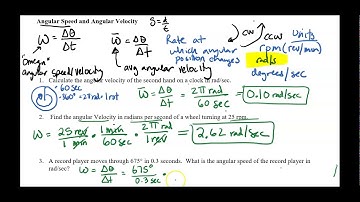 Angular Speed and Angular Velocity
S = d/t
ω = Δθ/Δt
ω̄ = Δθ/Δt
"omega"
angular speed/velocity
avg angular velocity
Rate at
which angular
position changes
CW
CCW
Units
rpm (rev/min)
rad/s
degrees/sec
1. Calculate the angular velocity of the second hand on a clock in rad/sec.
60 sec
360° = 2π rad = 1 rot
ω̄ = Δθ/Δt = 2π rad/60 sec = 0.10 rad/sec
2. Find the angular Velocity in radians per second of a wheel turning at 25 rpm.
ω = 25 rev/1 min · 1 min/60 sec · 2π rad/1 rev = 2.62 rad/sec
3. A record player moves through 675° in 0.3 seconds. What is the angular speed of the record player in
rad/sec?
ω = Δθ/Δt = 675°/0.3 sec ·